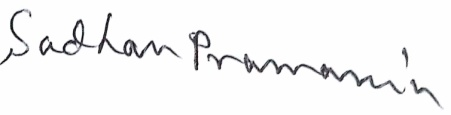 Sadhan Pramanin